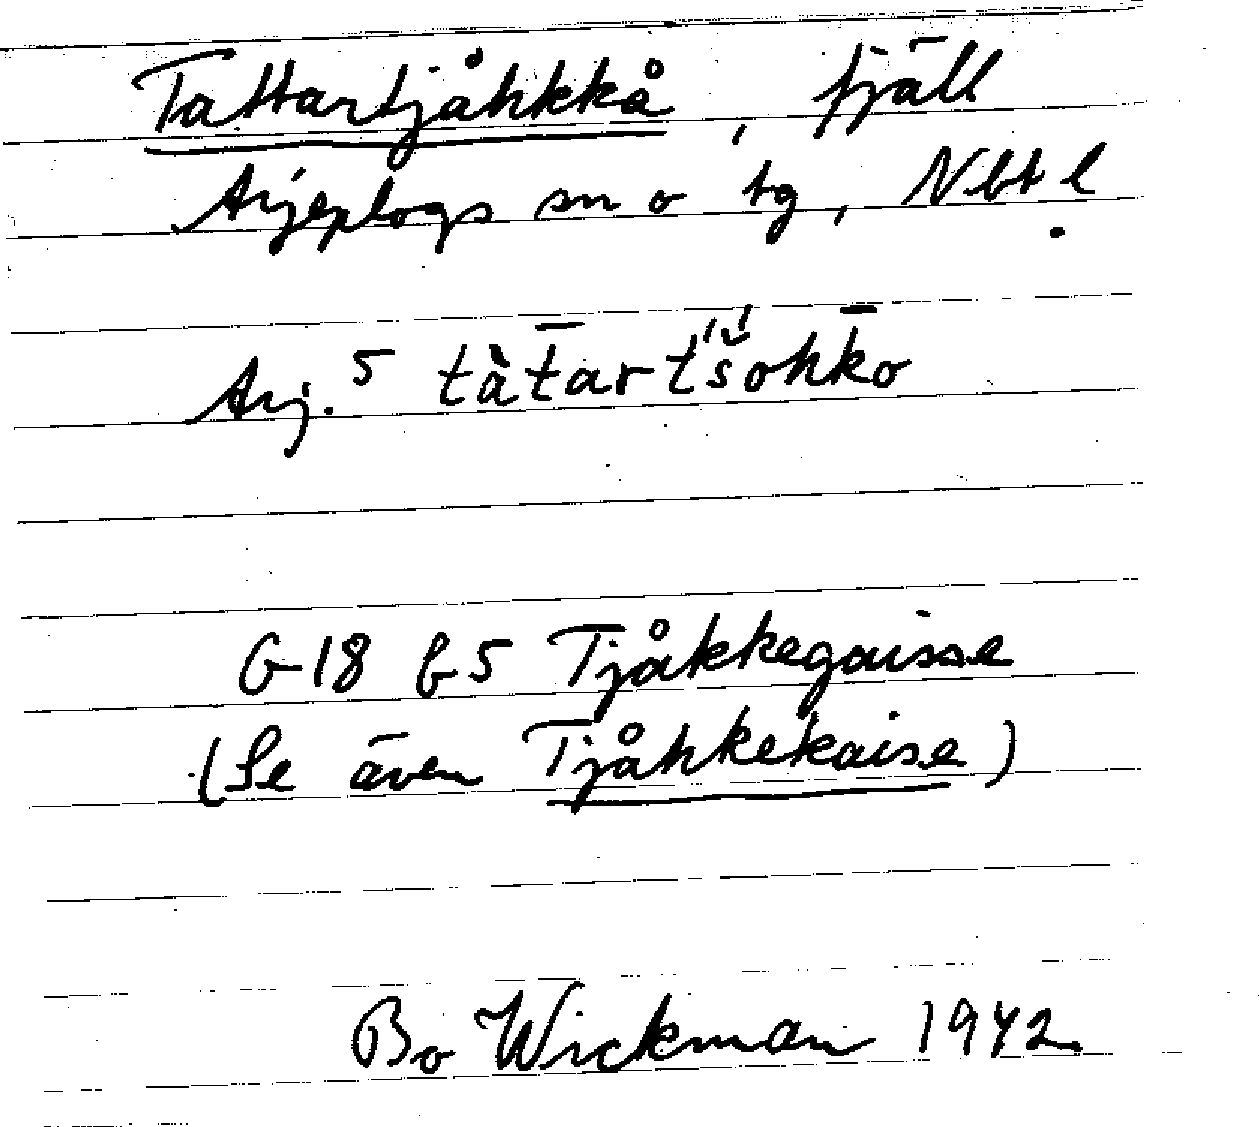 Tattartjåhkkå, fjäll
Arjeplogs sn o tg, Nbt l.
Arj. 5 tàt̄art́š́ohk̄o
G 18 f 5 Tjåkkegaisse
(Se även Tjåhkekaise)
Bo Wickman 1942.